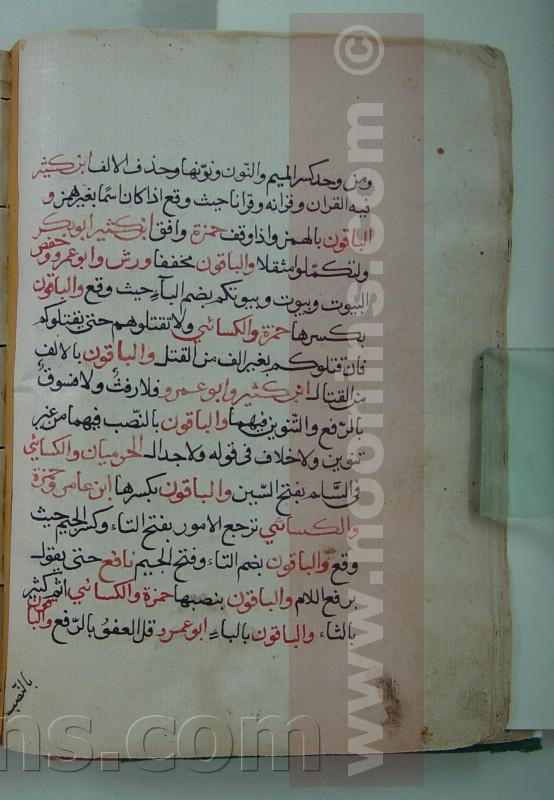 ومن وحد كسر الميم والنون ونونها وحذف الالف ابن كثير
فيه القران وقرانه وقرانا حيث وقع اذا كان اسما بغير همز و
الباقون بالهمز واذا وقف حمزة وافق ابن كثير ابو بكر
ولتكملوا مثقلا والباقون مخففا ورش وابو عمرو وحفص
البيوت وبيوت وبيوتكم بضم الباء حيث وقع والباقون
بكسرها حمزة والكسائي ولا تقتلوهم حتى يقتلوكم
فان قتلوكم بغير الف من القتل والباقون بالالف
من القتال ابن كثير وابو عمرو فلا رفث ولا فسوق
بالرفع والتنوين فيهما والباقون بالنصب فيهما من غير
تنوين ولا خلاف في قوله ولا جدال الحرميان والكسائي
في السلم بفتح السين والباقون بكسرها ابن عامر وحمزة
والكسائي ترجع الامور بفتح التاء وكسر الجيم حيث
وقع والباقون بضم التاء وفتح الجيم نافع حتى يقول
برفع اللام والباقون بنصبها حمزة والكسائي اثم كثير
بالثاء والباقون بالباء ابو عمرو قل العفو بالرفع والباقون
بالنصب
www.noorlins.com ©
ns.com